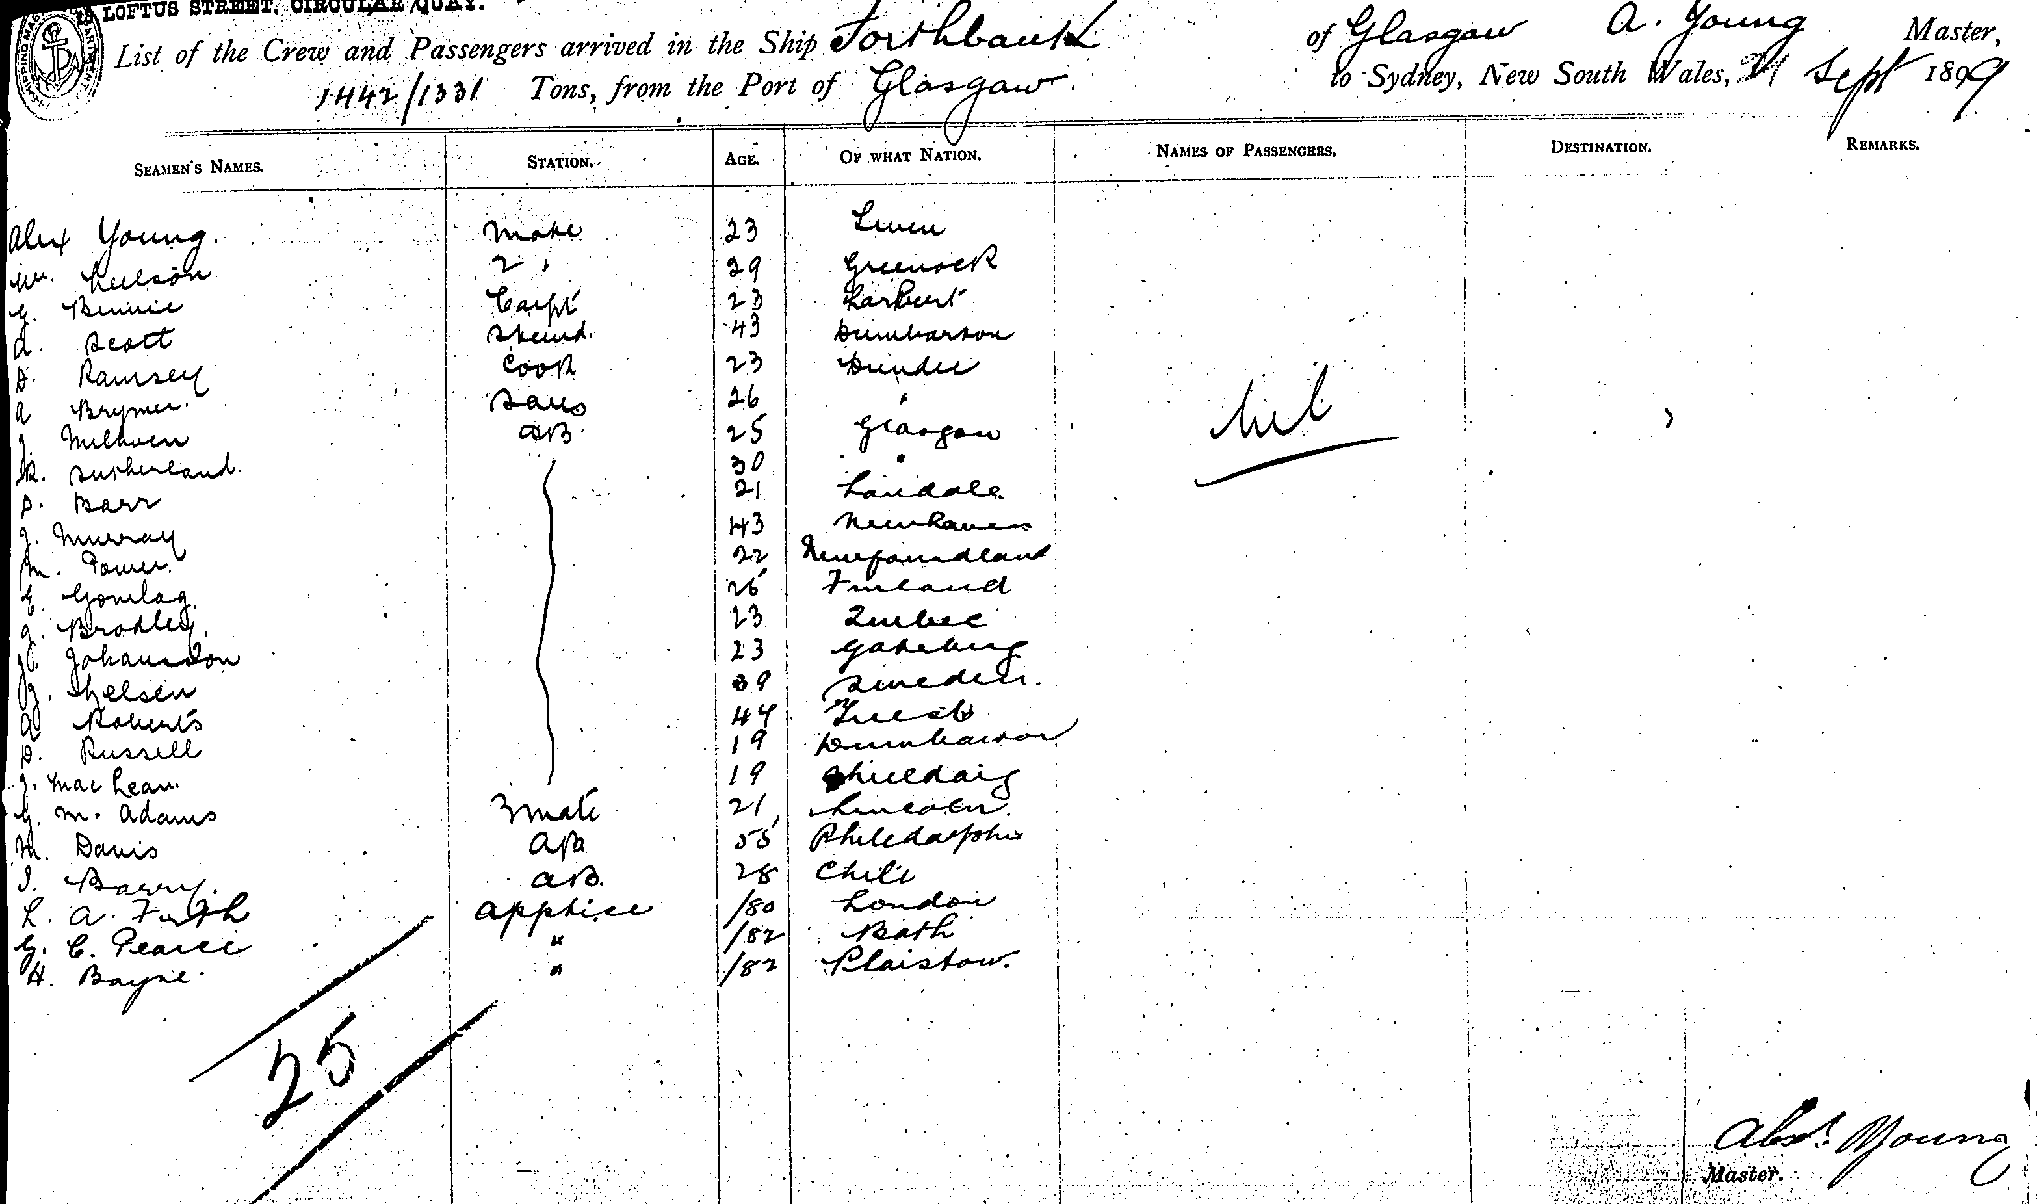 LOFTUS STREET, CIRCULAR QUAY.
List of the Crew and Passengers arrived in the Ship Forthbank of Glasgow A. Young Master,
1442/1331 Tons, from the Port of Glasgow to Sydney, New South Wales, 21 Sept 1899
SEAMEN'S NAMES. STATION. AGE. OF WHAT NATION. NAMES OF PASSENGERS. DESTINATION. REMARKS.
Alex Young. Mate 23 Leven
Wm. Neilson 2 " 29 Greenock
G. Binnie Carpt 23 Larbert
A. Scott Stewd. 43 Dumbarton
D. Ramsey Cook 23 Dundee
A Brymer. Sails 26 "
J. Milhven AB 25 Glasgow
R. Sutherland. 30 "
D. Barr 21 
J. Murray 43 Newhaven
M. Power. 22 Newfoundland
26 Finland
J. Bradley. 23 Quebec
Johansson 23 Gothburg
39 Sweden.
A Roberts 44 Triest
D. Russell 19 Dumbarton
J. MacLean. 19 Shieldaig
G. M. Adams 3 Mate 21 Lincoln.
M. Davis AB 55 Philedalphia
J. Barry. AB. 28 Chili
L. A. Firth Apptice /80 London
G. C. Pearce " /82 Bath
H. Bayne. " /82 Plaistow.
Nil
25
Alexr. Young
Master.